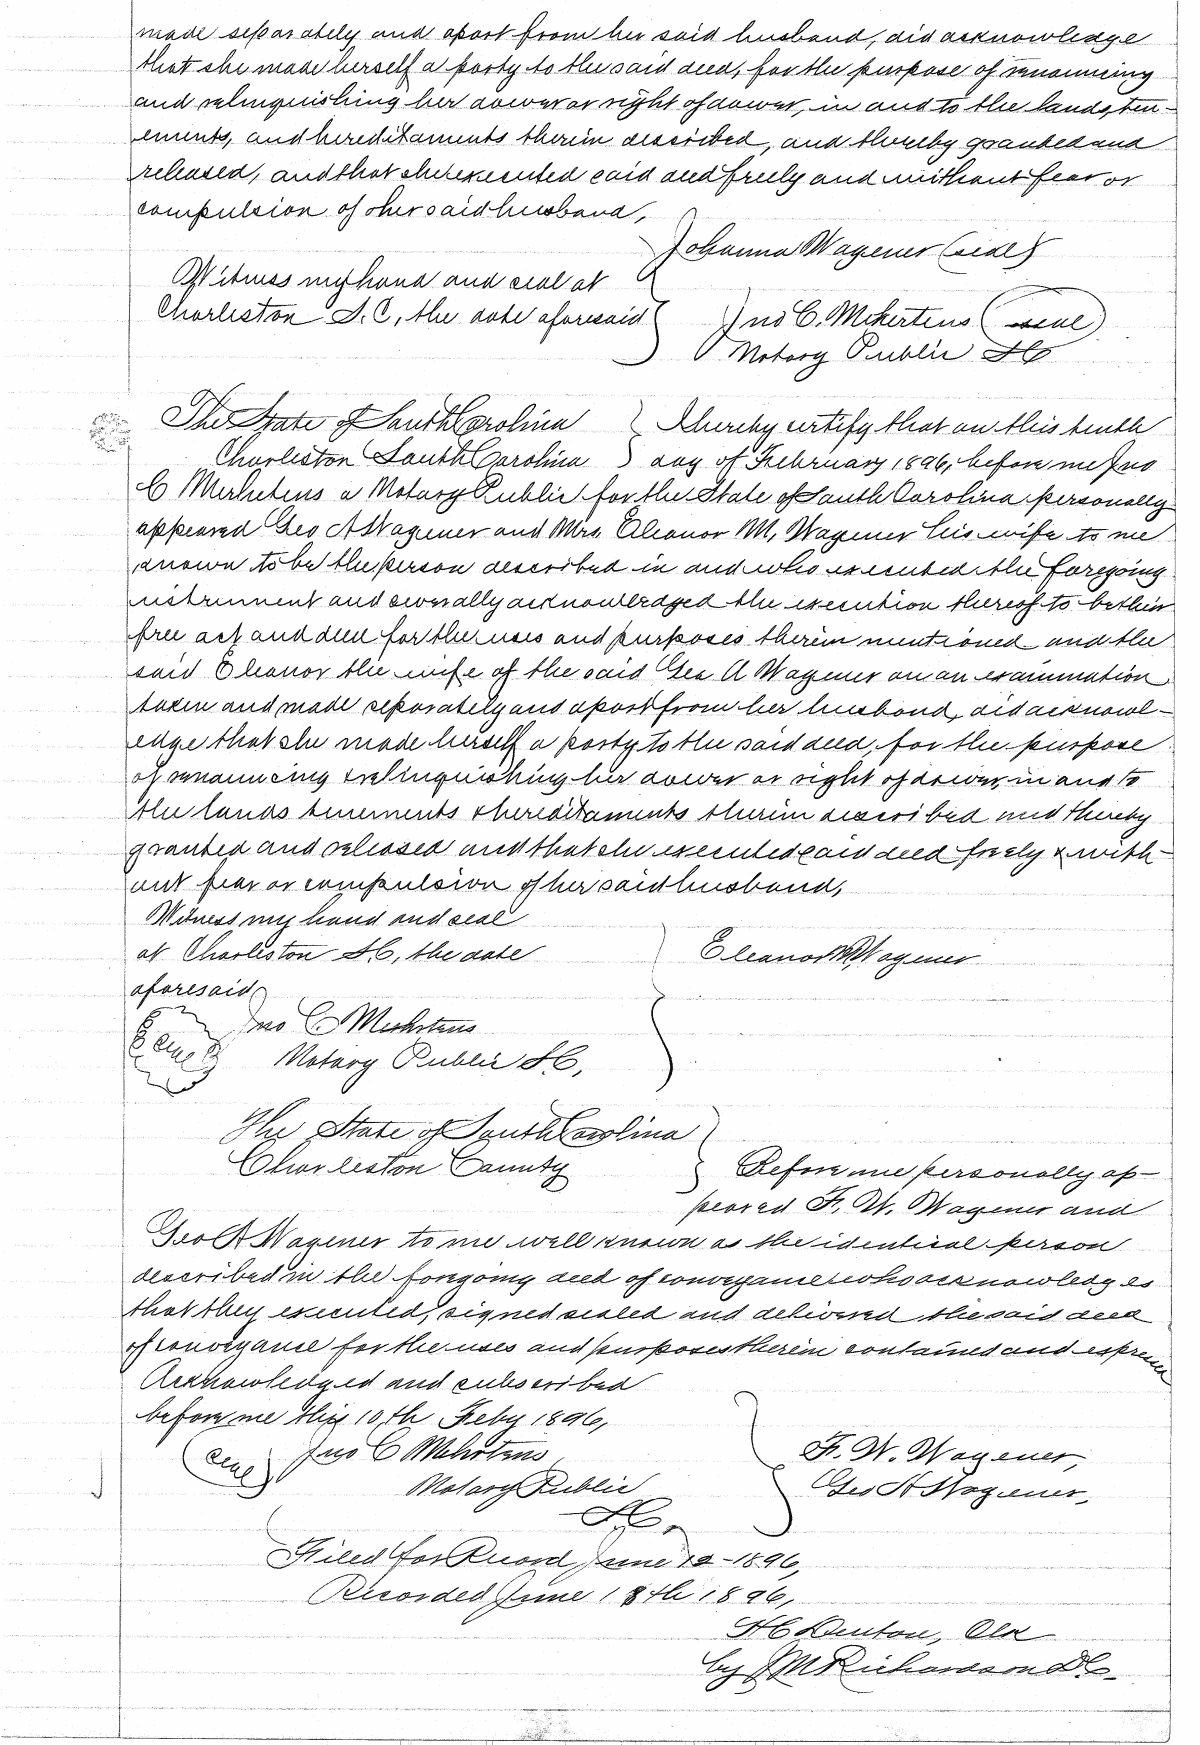 made separately and apart from her said husband, did acknowledge
that she made herself a party to the said deed, for the purpose of renouncing
and relinquishing her dower or right of dower, in and to the lands, ten-
ements, and hereditaments therein described, and thereby granted and
released, and that she executed said deed freely and without fear or
compulsion of her said husband,
Johanna Wagener (seal)
Witness my hand and seal at
Charleston S.C, the date aforesaid
Jno C. Mehrtens (seal)
Notary Public SC
The State of South Carolina
I hereby certify that on this tenth
Charleston South Carolina
day of February 1896, before me Jno
C Merhetens a Notary Public for the State of South Carolina personally
appeared Geo A Wagener and Mrs. Eleanor M, Wagener his wife to me
known to be the person described in and who executed the foregoing
instrument and severally acknowledged the execution thereof to be their
free act and deed for the uses and purposes therein mentioned and the
said Eleanor the wife of the said Geo A Wagener on an examination
taken and made separately and apart from her husband, did acknowl-
edge that she made herself a party to the said deed, for the purpose
of renouncing & relinquishing her dower or right of dower, in and to
the lands tenements & hereditaments therein described and thereby
granted and released and that she executed said deed freely & with-
out fear or compulsion of her said husband,
Witness my hand and seal
at Charleston S.C, the date
Eleanor M Wagener
aforesaid
Jno C Mehrtens
Seal
Notary Public S.C,
The State of South Carolina
Charleston County
Before me personally ap-
peared F. W. Wagener and
Geo A Wagener to me well known as the identical person
described in the foregoing deed of conveyance who acknowledges
that they executed, signed sealed and delivered the said deed
of conveyance for the uses and purposes therein contained and express
Acknowledged and subscribed
before me this 10th Feby 1896,
(Seal) Jno C Mehrtens
F. W. Wagener,
Notary Public
Geo A Wagener,
S.C.
Filed for Record June 12-1896,
Recorded June 18th 1896,
HC Denton, Clk
by J M Richardson DC